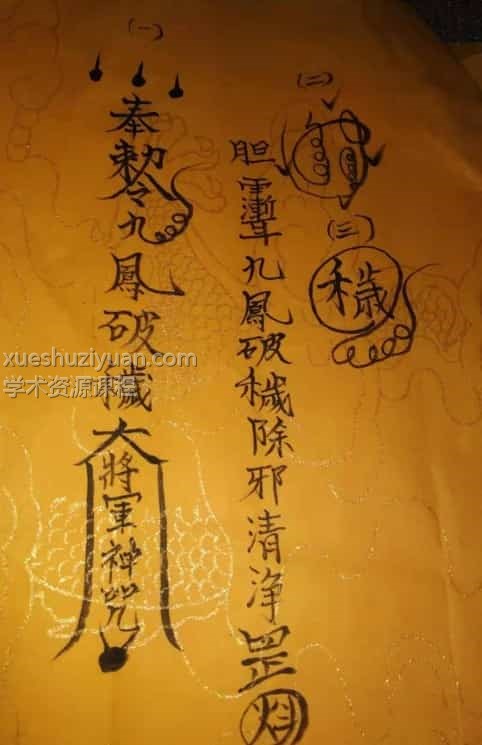 (一)
奉敕令九鳳破穢大將軍神咒
(二)
胆䨯九鳳破穢除邪清净罡
(三)
穢
xueshuziyuan.com
学术资源课程